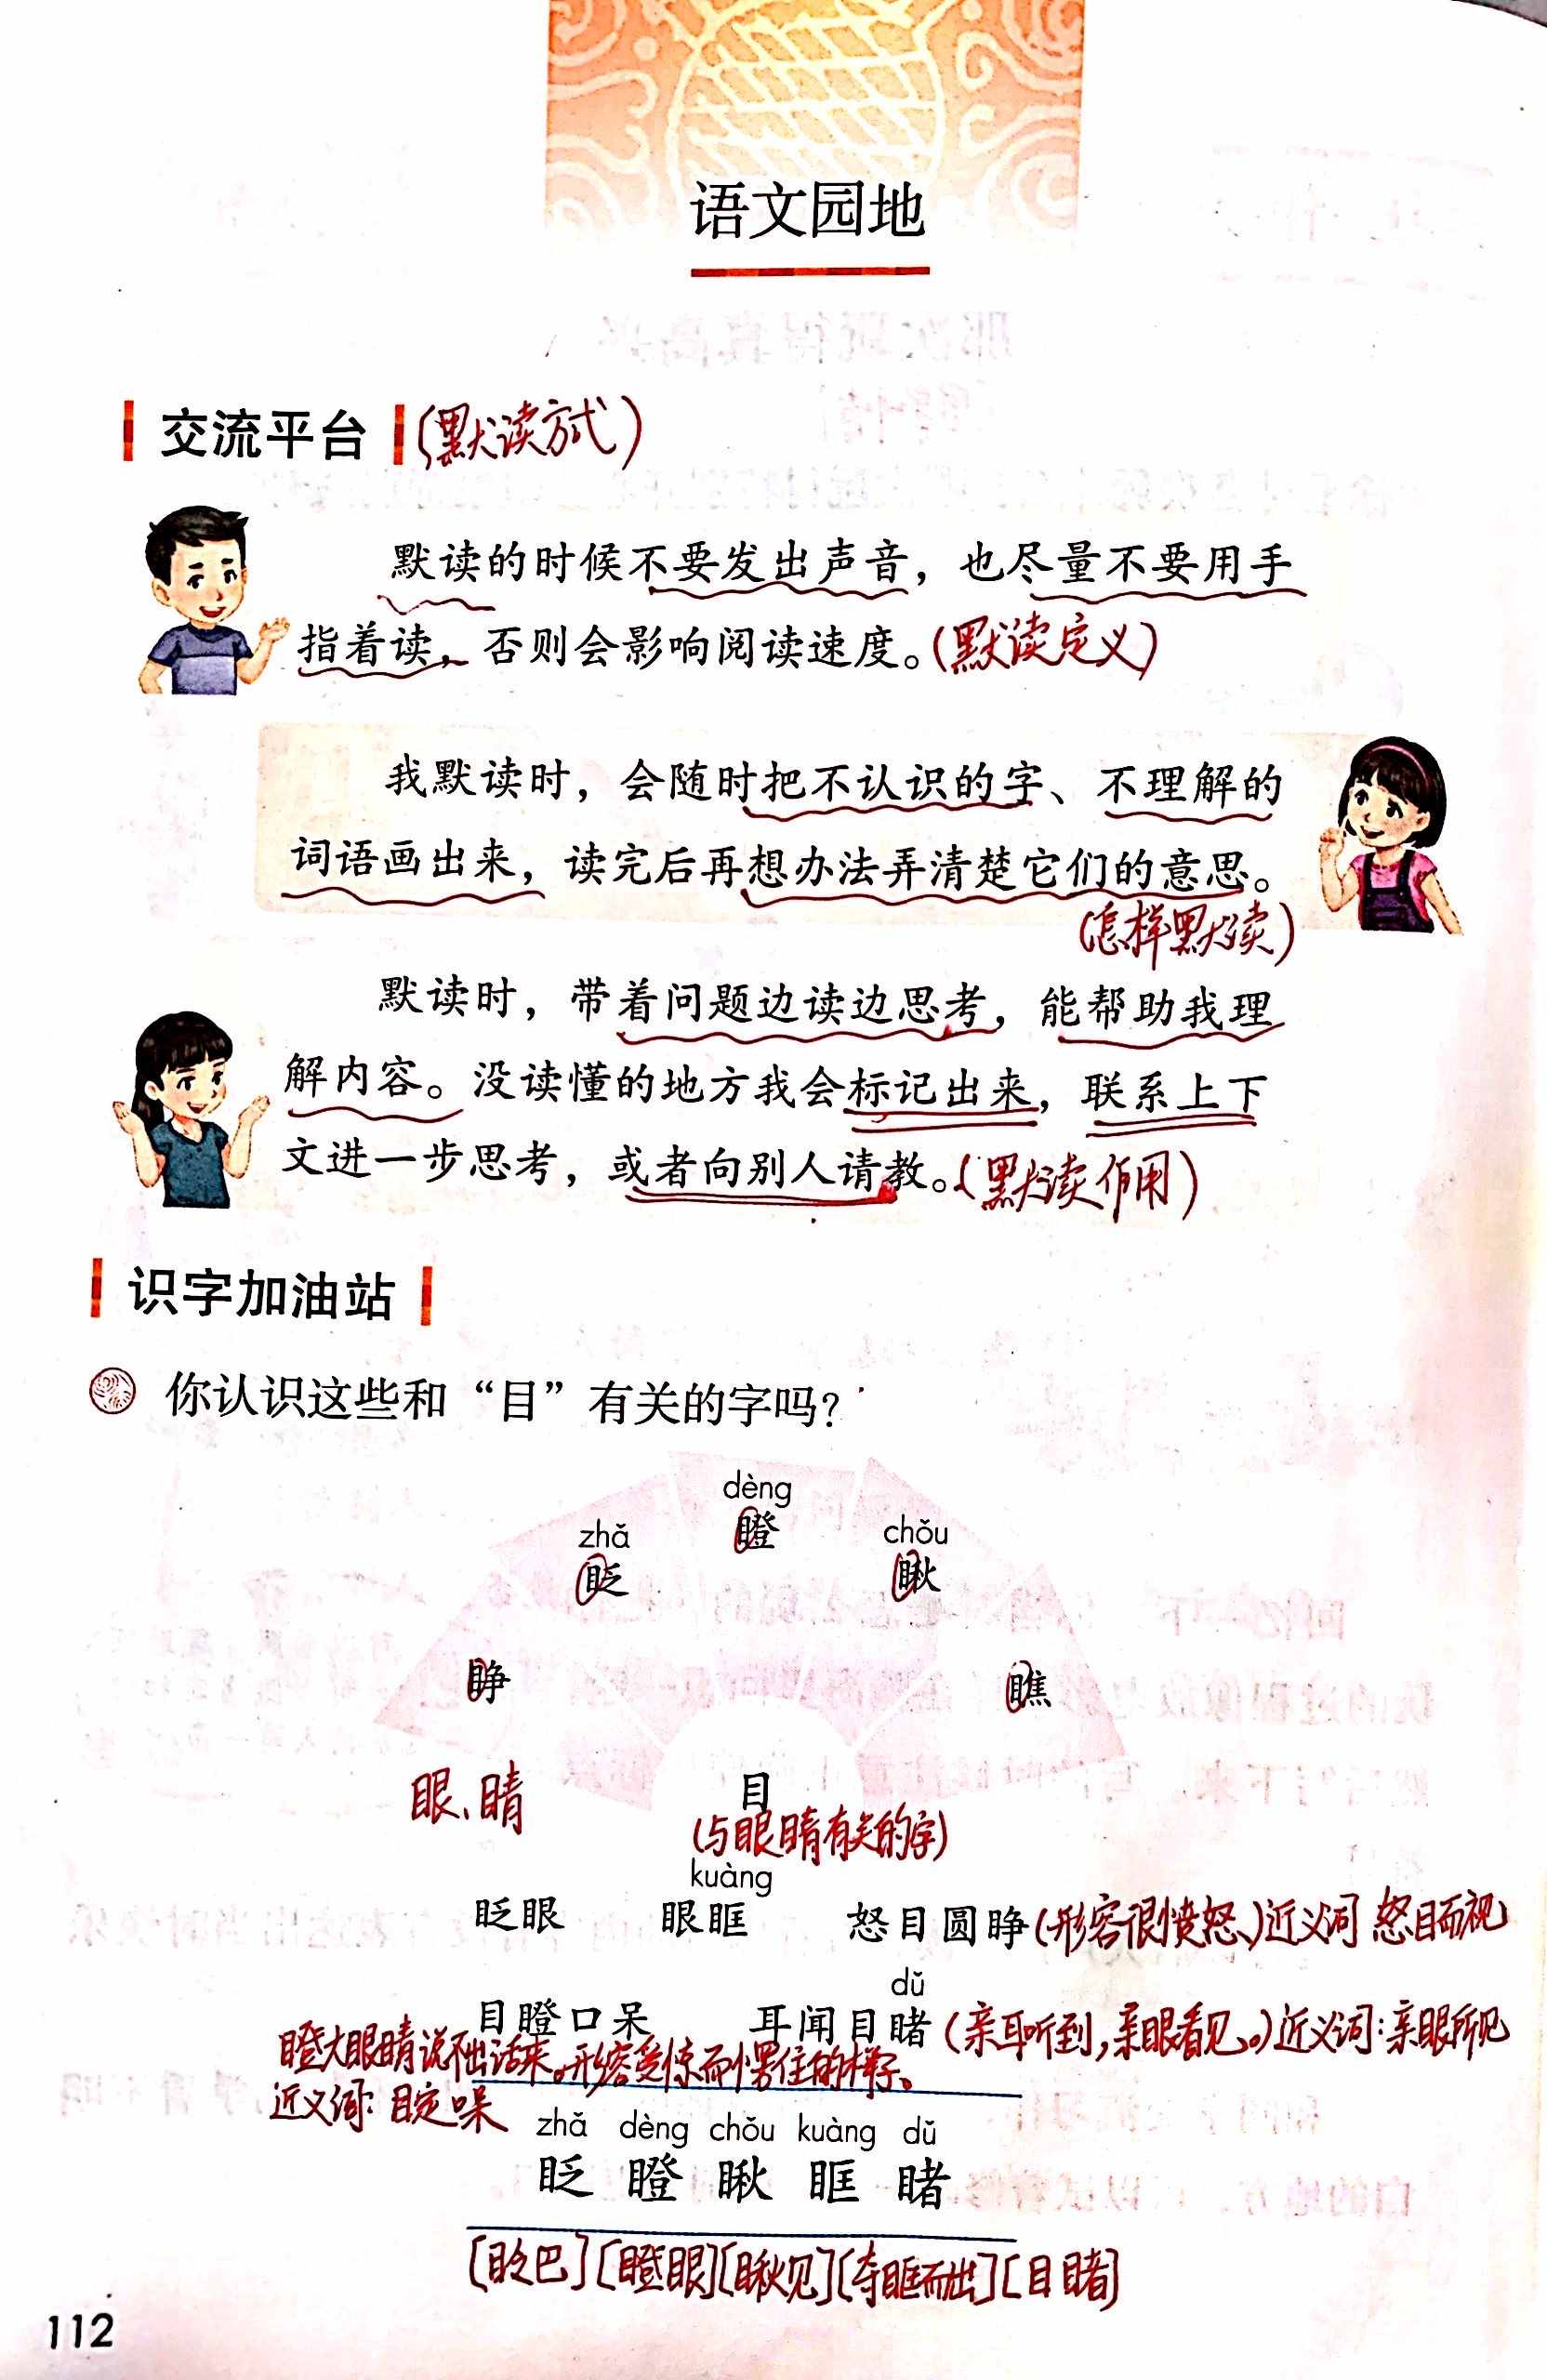 语文园地
交流平台(默读方式)
默读的时候不要发出声音，也尽量不要用手
指着读，否则会影响阅读速度。(默读定义)
我默读时，会随时把不认识的字、不理解的
词语画出来，读完后再想办法弄清楚它们的意思。
(怎样默读)
默读时，带着问题边读边思考，能帮助我理
解内容。没读懂的地方我会标记出来，联系上下
文进一步思考，或者向别人请教。(默读作用)
识字加油站
你认识这些和“目”有关的字吗？
dèng
瞪
zhǎ chǒu
眨 瞅
睁 瞧
眼、睛 目
(与眼睛有关的字)
kuàng
眨眼 眼眶 怒目圆睁(形容很愤怒、)近义词 怒目而视
dǔ
目瞪口呆 耳闻目睹(亲耳听到,亲眼看见。)近义词:亲眼所见
瞪大眼睛说不出话来。形容受惊而愣住的样子。
近义词:目定口呆
zhǎ dèng chǒu kuàng dǔ
眨 瞪 瞅 眶 睹
[眨巴][瞪眼][瞅见][夺眶而出][目睹]
112